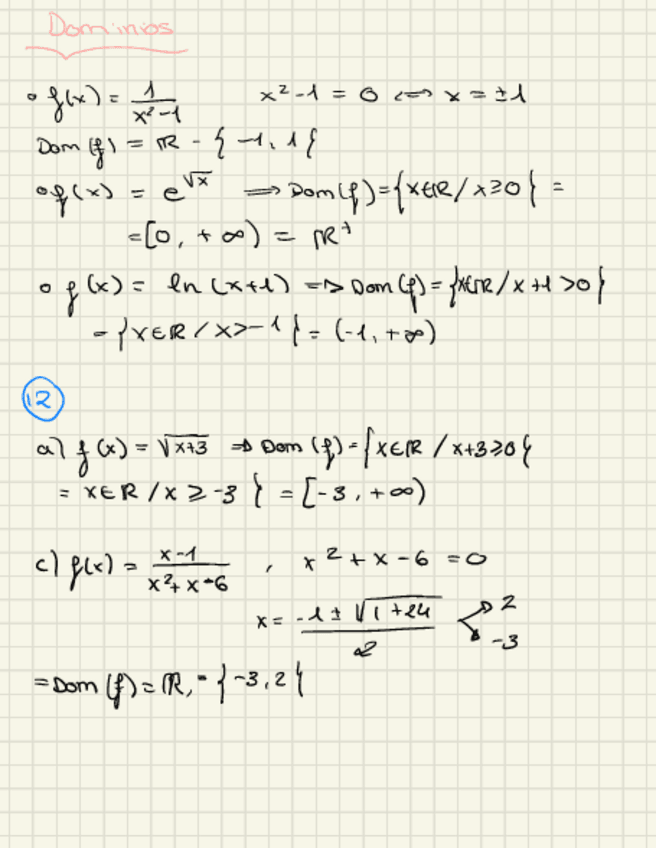 Dominios
∘ f(x) = 1/(x²-1)    x²-1 = 0 ⟺ x = ±1
Dom (f) = ℝ - {-1, 1}
∘ f(x) = e^√x ⟹ Dom(f) = {x∈ℝ / x≥0} =
= [0, +∞) = ℝ⁺
∘ f(x) = ln (x+1) ⟹ Dom (f) = {x∈ℝ / x+1 >0}
= {x∈ℝ / x>-1} = (-1, +∞)
12
a) f(x) = √(x+3) ⟹ Dom (f) = {x∈ℝ / x+3≥0}
= x∈ℝ / x ≥ -3 } = [-3, +∞)
c) f(x) = (x-1)/(x²+x-6) , x² + x - 6 = 0
x = (-1 ± √(1+24))/2 2
-3
= Dom (f) = ℝ, - {-3, 2}